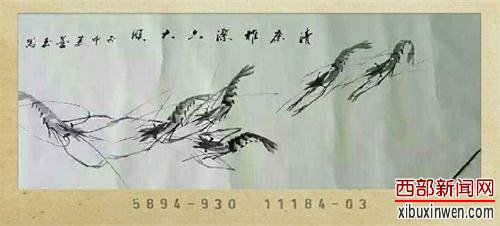 清廉雅潔六大順
5894-930 11184-03
西部新闻网
xibuxinwen.com